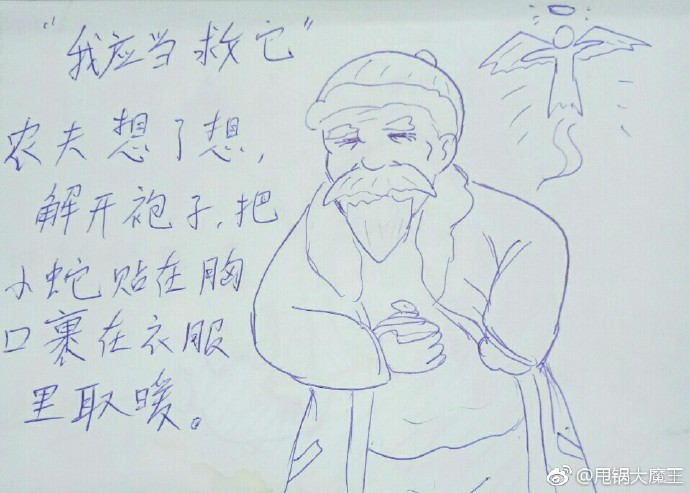 "我应当救它"
农夫想了想,
解开袍子,把
小蛇贴在胸
口裹在衣服
里取暖。
@甩锅大魔王